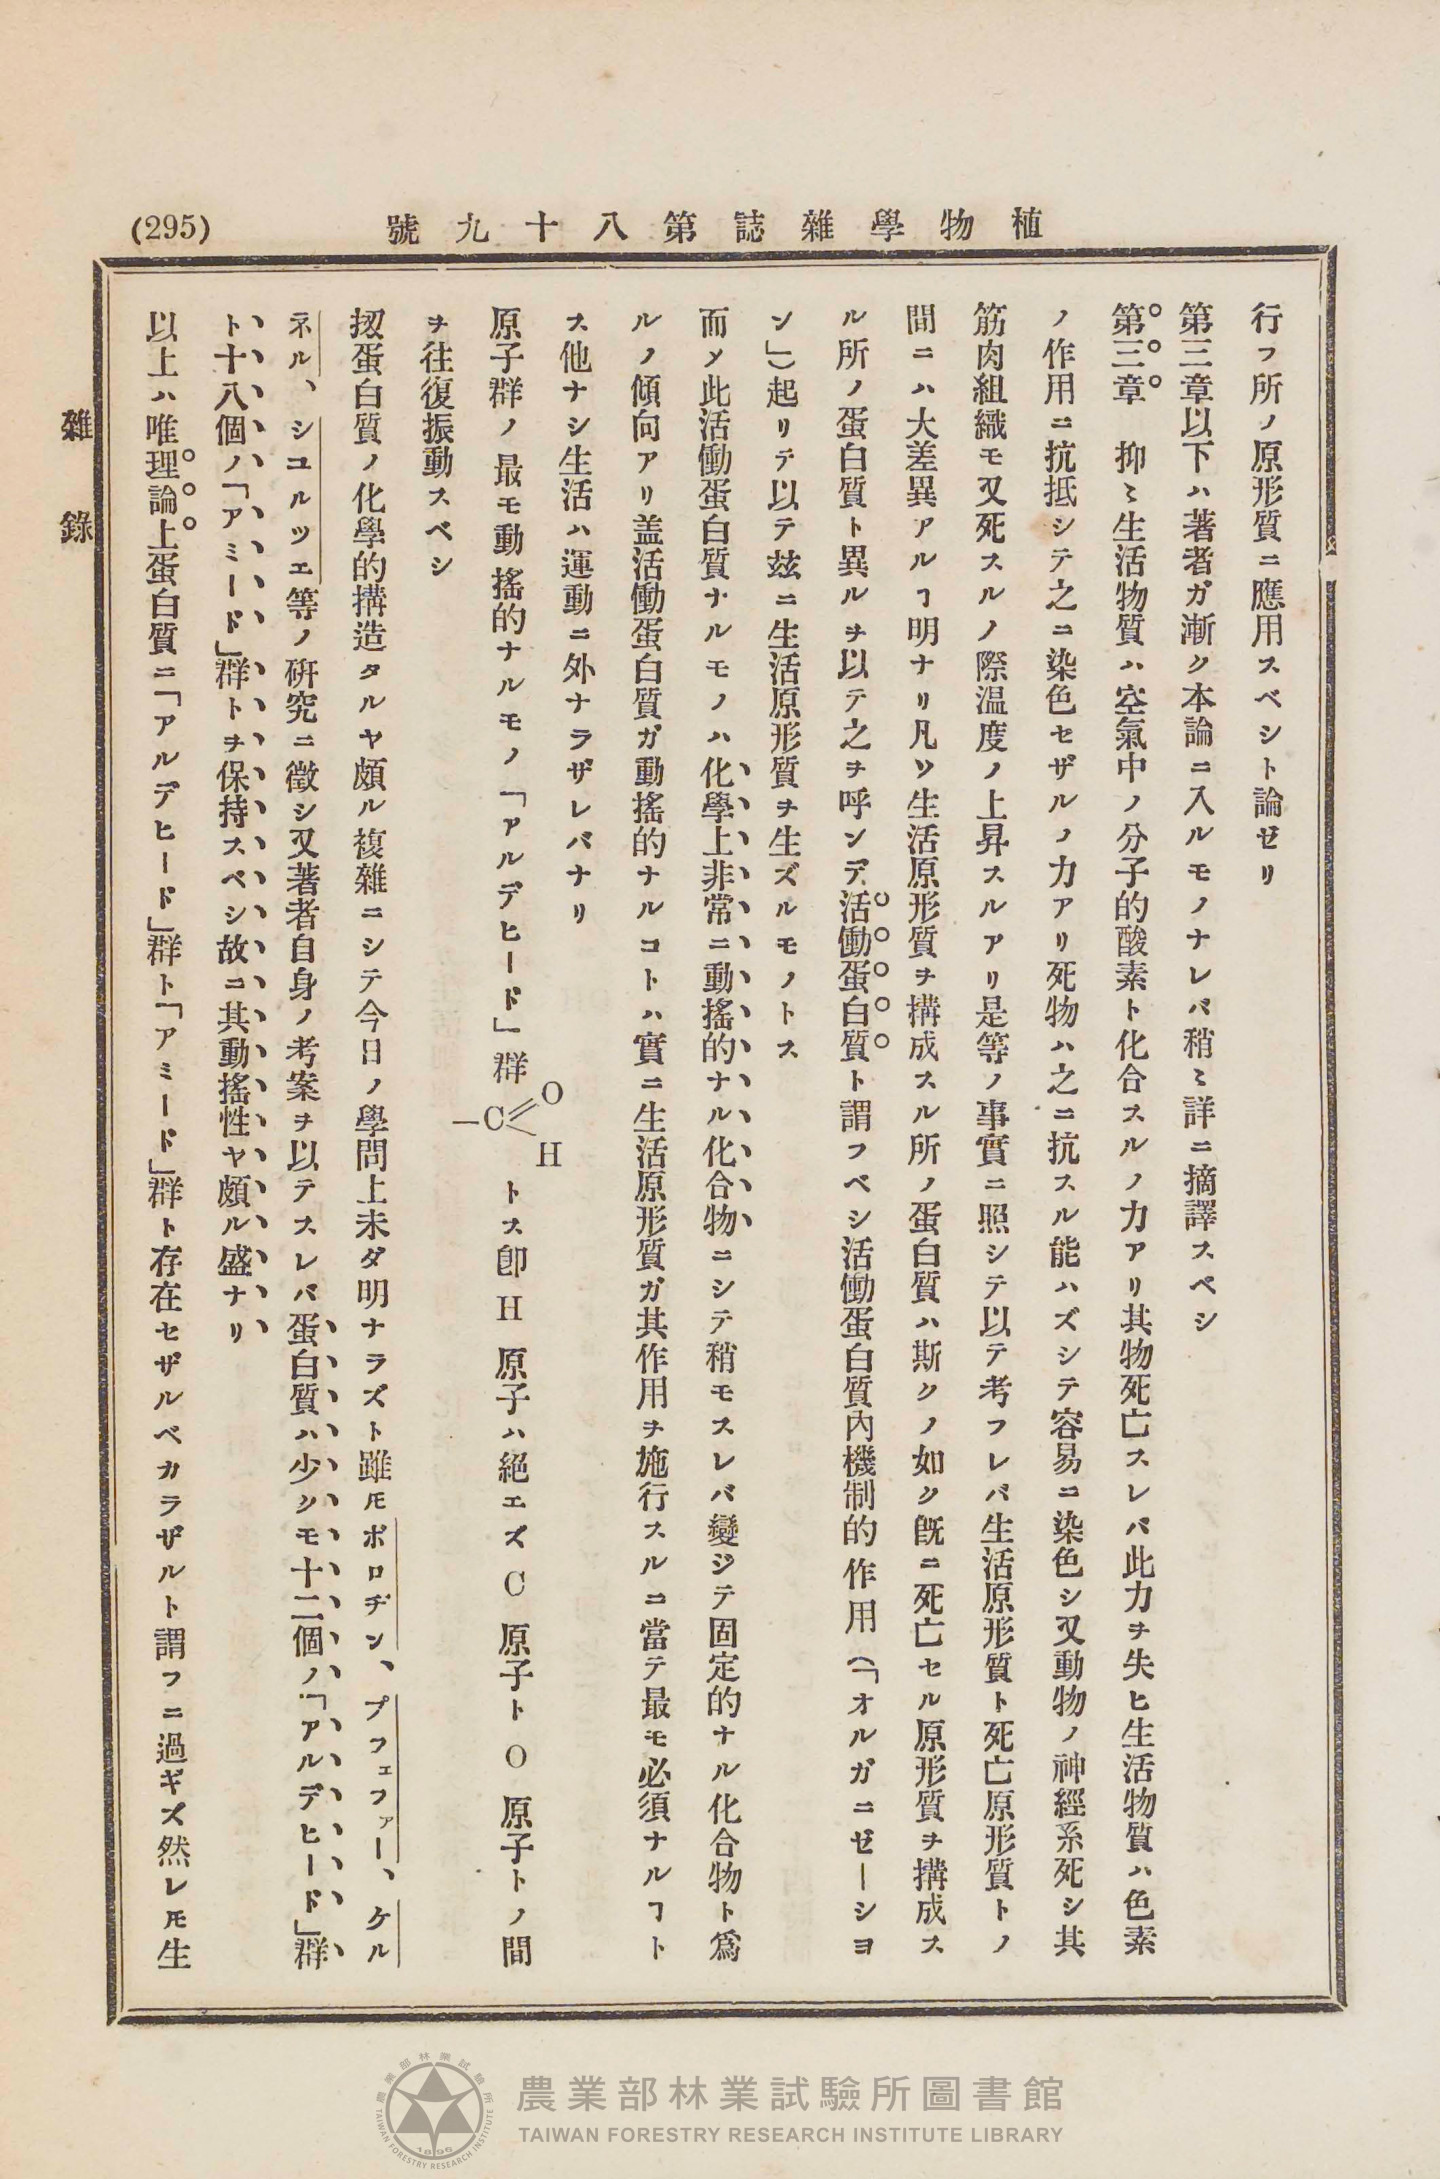 植物學雜誌第八十九號
(295)
行フ所ノ原形質ニ應用スベシト論ゼリ
第三章以下ハ著者ガ漸ク本論ニ入ルモノナレバ稍〻詳ニ摘譯スベシ
第三章　抑〻生活物質ハ空氣中ノ分子的酸素ト化合スルノ力アリ其物死亡スレバ此力ヲ失ヒ生活物質ハ色素
ノ作用ニ抗抵シテ之ニ染色セザルノ力アリ死物ハ之ニ抗スル能ハズシテ容易ニ染色シ又動物ノ神經系死シ其
筋肉組織モ又死スルノ際温度ノ上昇スルアリ是等ノ事實ニ照シテ以テ考フレバ生活原形質ト死亡原形質トノ
間ニハ大差異アルヿ明ナリ凡ソ生活原形質ヲ搆成スル所ノ蛋白質ハ斯クノ如ク既ニ死亡セル原形質ヲ搆成ス
ル所ノ蛋白質ト異ルヲ以テ之ヲ呼ンデ活働蛋白質ト謂フベシ活働蛋白質內機制的作用(「オルガニゼーシヨ
ン」)起リテ以テ玆ニ生活原形質ヲ生ズルモノトス
而〆此活働蛋白質ナルモノハ化學上非常ニ動搖的ナル化合物ニシテ稍モスレバ變ジテ固定的ナル化合物ト爲
ルノ傾向アリ盖活働蛋白質ガ動搖的ナルコトハ實ニ生活原形質ガ其作用ヲ施行スルニ當テ最モ必須ナルヿト
ス他ナシ生活ハ運動ニ外ナラザレバナリ
原子群ノ最モ動搖的ナルモノ「アルデヒード」群 —C O H トス卽 H 原子ハ絕エズ C 原子ト O 原子トノ間
ヲ往復振動スベシ
扨蛋白質ノ化學的搆造タルヤ頗ル複雜ニシテ今日ノ學問上未ダ明ナラズト雖𪜈ボロヂン、プフェファー、ケル
ネル、シユルツエ等ノ硏究ニ徵シ又著者自身ノ考案ヲ以テスレバ蛋白質ハ少シモ十二個ノ「アルデヒード」群
ト十八個ノ「アミード」群トヲ保持スベシ故ニ其動搖性ヤ頗ル盛ナリ
以上ハ唯理論上蛋白質ニ「アルデヒード」群ト「アミード」群ト存在セザルベカラザルト謂フニ過ギズ然レ𪜈生
雜錄
農業部林業試驗所圖書館
TAIWAN FORESTRY RESEARCH INSTITUTE LIBRARY
農業部林業試驗所
TAIWAN FORESTRY RESEARCH INSTITUTE
1896